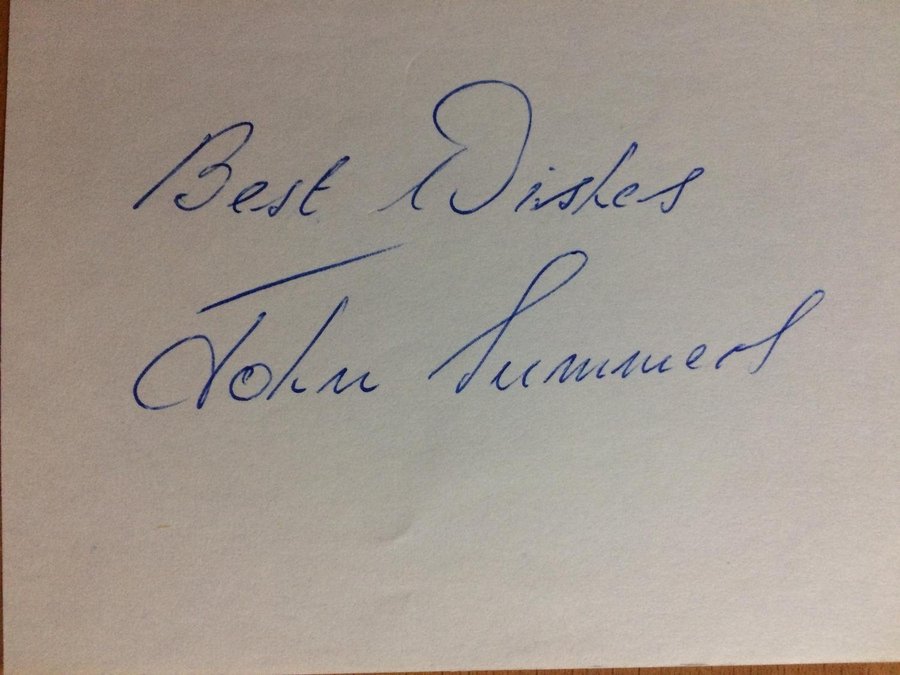 Best Wishes
John Summers